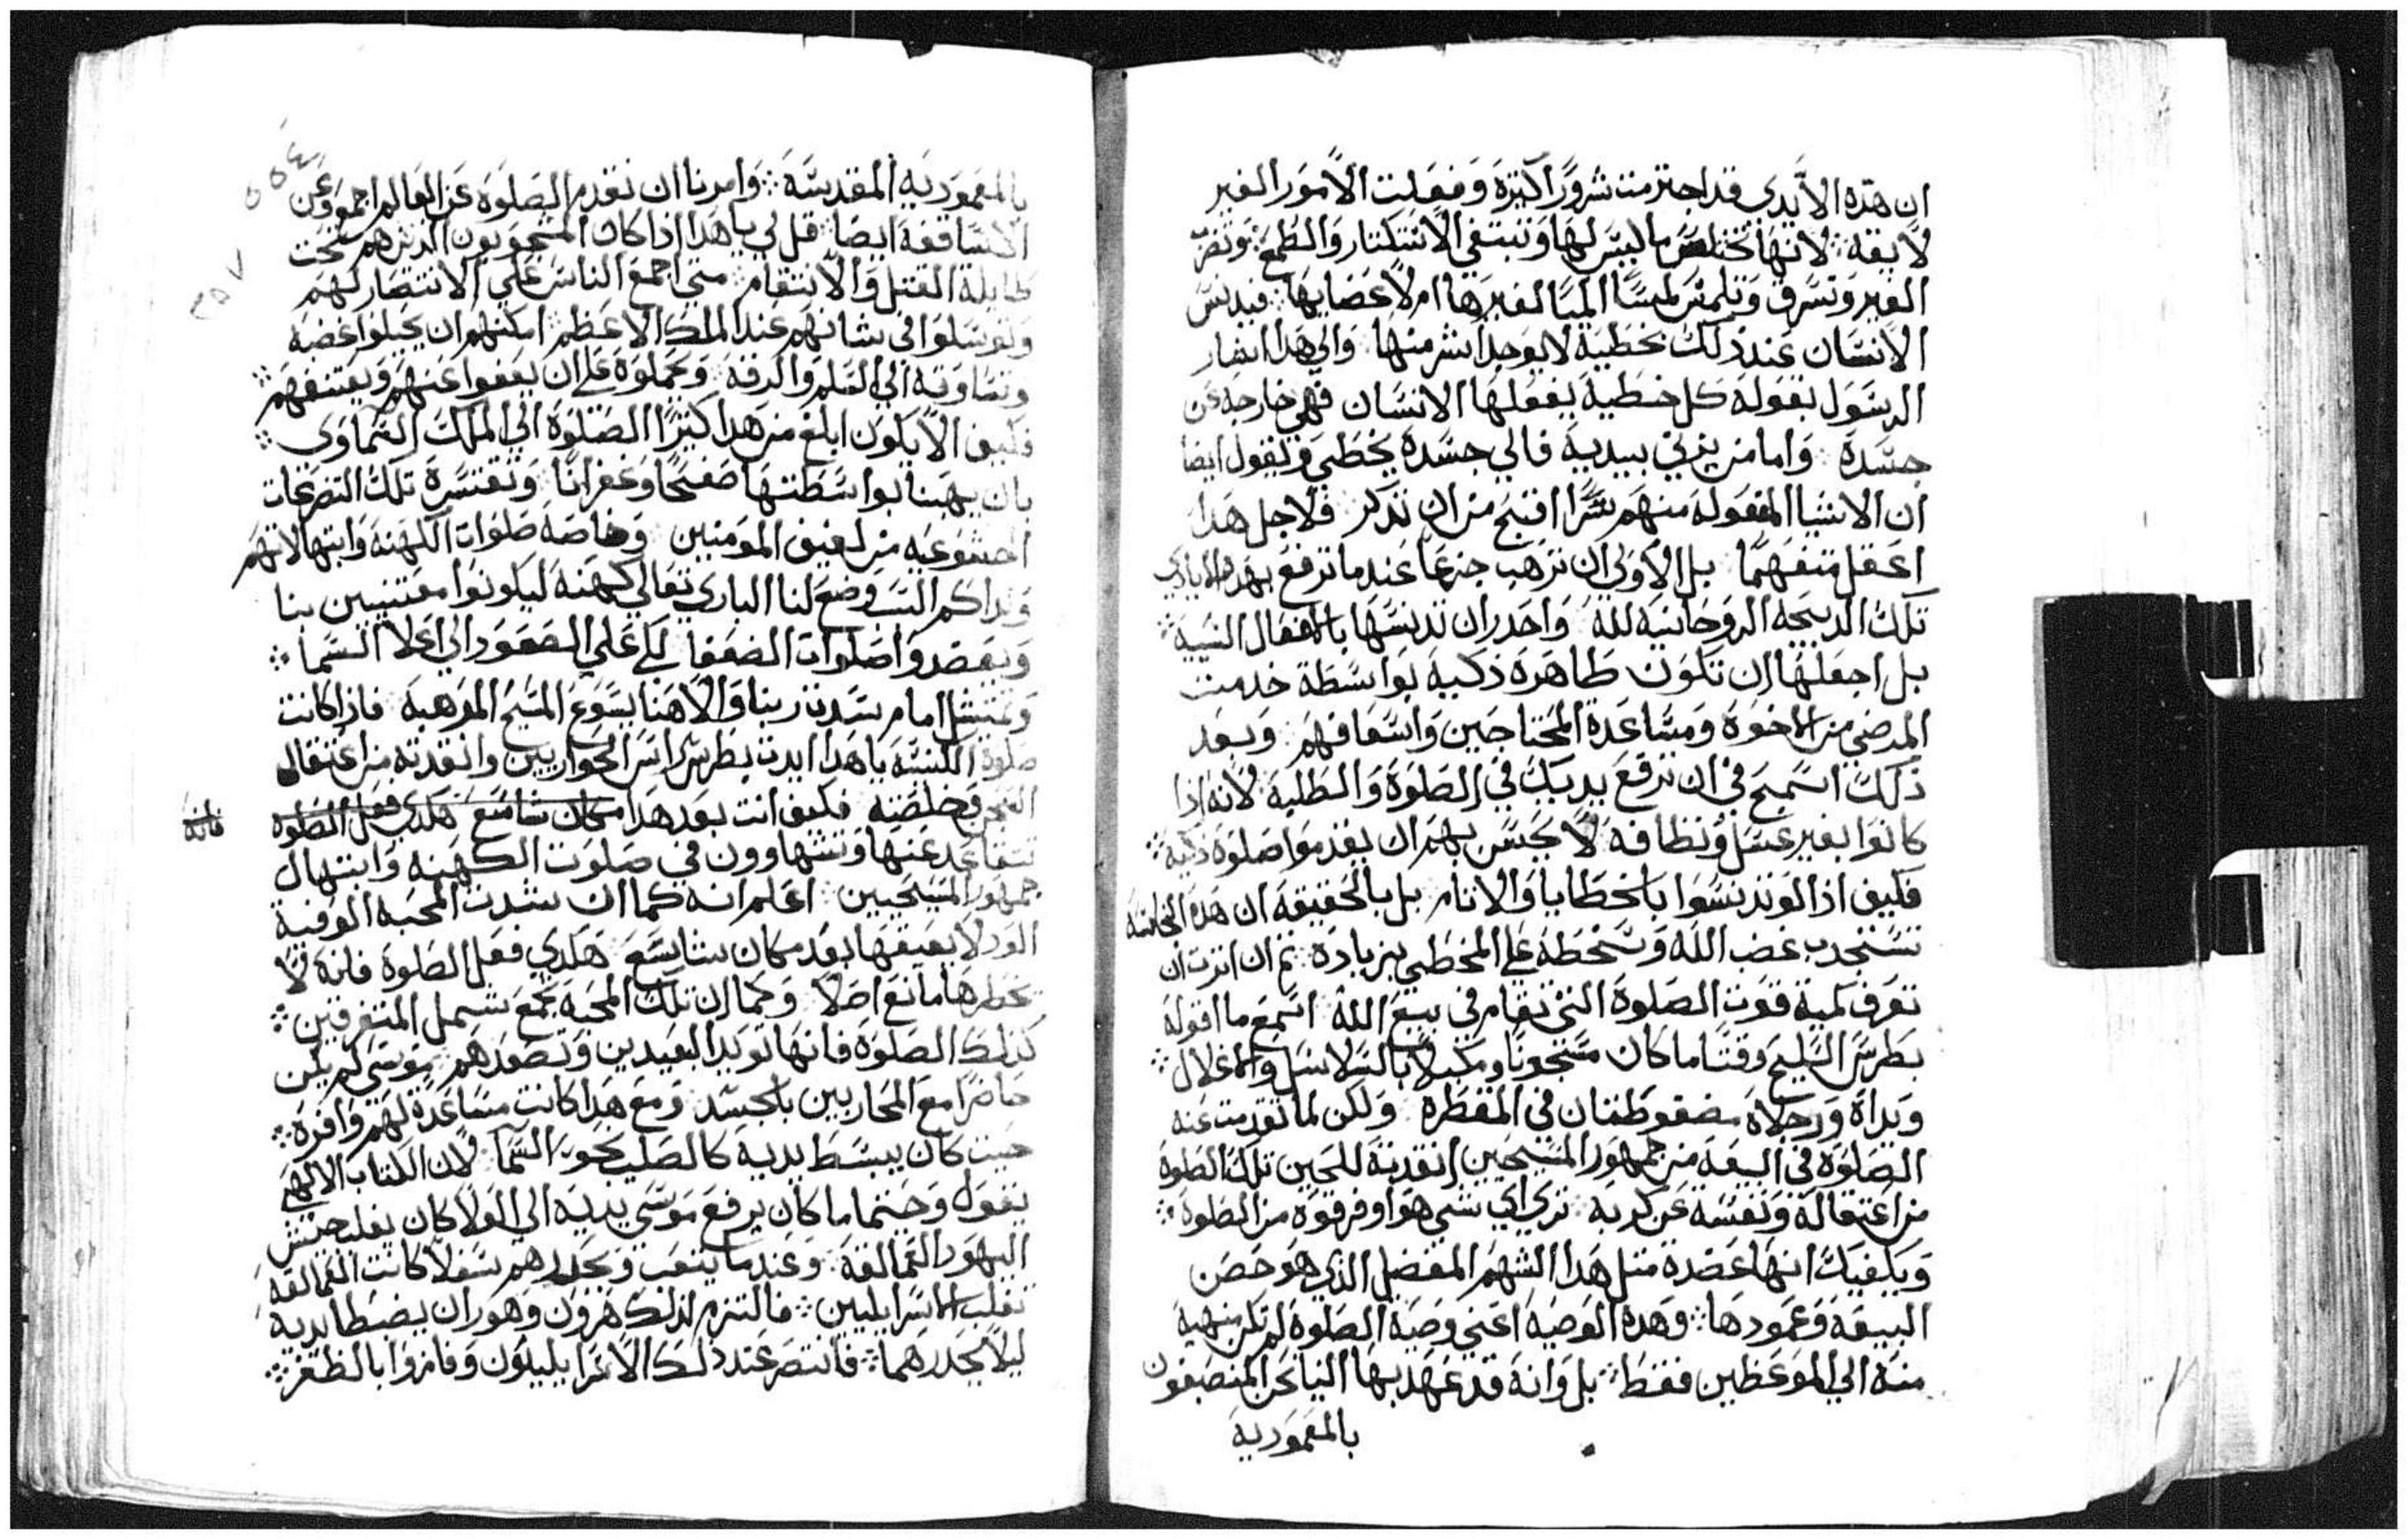 ان هذه الايدي قد اجترمت شرورًا كثيرة وفعلت الامور الغير
لايقة لانها تختلس ما ليس لها وتبتغي الاستكثار والطمع وتضرب
الغير وتسرق وتلمس لمسًا اليمًا لغيرها ام لاعضايها فيدنس
الانسان عند ذلك بخطية لا يوجد اشر منها والي هدا اشار
الرسول بقوله كل خطية يفعلها الانسان فهي خارجة عن
جسده واما من يزني بيديه فالي جسده يخطي ويقول ايضا
ان الاشيا المفعوله منهم سرًا اقبح من ان تذكر فلاجل هدا
اعقل متفهمًا بل الاولي ان ترهب جزعًا عندما ترفع بهده الايادي
تلك الدبيحة الروحانية لله واحدر ان تدنسها بالافعال السية
بل اجعلها ان تكون طاهرة زكية بواسطة خدمت
المرضي من الاخوة ومساعدة المحتاجين واسعافهم وبعد
ذلك اسميح في ان ترفع يديك في الصلوة والطلبة لانه اذا
كانوا بغير غسل ونظافة لا يحسن بهم ان يقدموا صلوة زكية
فكيف اذا لو تدنسوا بالخطايا والاثام بل بالحقيقة ان هذه النجاسة
تستجدب غضب الله وسخطه علي المخطي بزيادة ثم ان اثرت ان
تعرف كمية قوت الصلوة التي تقام في بيع الله اسمع ما اقوله
بطرس السليح وقتًا ما كان مسجونًا ومكبلًا بالسلاسل والاغلال
ويداه ورجلاه مضغوطتان في المقطرة ولكن لما تقدمت عنه
الصلوة في البيعة من جمهور المسيحيين انقدته للحين تلك الصلوة
من اعتقاله ونفسه عن كربه تري اي شي هو اوفر قوه من الصلوة
ويكفيك انها عضدة متل هدا الشهم المفضل الذي هو حصن
البيعة وعمودها وهده الوصية اعني وصية الصلوة لم تكن منهية
منه الي الموعظين فقط بل وانه قد عهد بها الينا نحن المنصبغون
بالمعمودية
بالمعمودية المقدسة وامرنا ان نقدم الصلوة عن العالم اجمع وعن
الاساقفة ايضا قل لي يا هدا اذا كان المسجونون الدين هم تحت
طايلة القتل والانتقام متي اجمع الناس علي الانتصار لهم
وتوسلوا في شانهم عند الملك الاعظم امكنهم ان يحيلوا غضبه
وقساوته الي السلم والرقة ويحملوه علي ان يعفوا عنهم ويعتقهم
فكيف الا يكون ابلغ من هدا كثيرًا الصلوة الي الملك السماوي
بان يهبنا بواسطتها صفحًا وغفرانًا وتقتسره تلك التضرعات
الخشوعيه من لفيف المومنين وخاصة صلوات الكهنة وابتهالاتهم
ولداكم السبب وضع لنا الباري تعالي كهنة ليكونوا معتنيين بنا
ويعضدوا صلوات الضعفا لكي علي الصعود الي اعلا السما
وتمتثل امام سدت ربنا والاهنا يسوع المسيح المرهبة فاذا كانت
صلوة الكنيسة يا هدا ايدت بطرس راس الحواريين وانقدته من اعتقال
السجن وخلصته فكيف انت بعد هدا مكان شاسع هكدي فعل الصلوة
فانه
تتقاعد عنها وتتهاوون في صلوت الكهنة وابتهال
جمهور المسيحيين اعلم انه كما ان شدت المحبة الوفية
الود لا يعيقها بعد مكان شاسع هكدي فعل الصلوة فانه لا
يحظرها مانع اصلًا وكما ان تلك المحبة تجمع شمل المتفرقين
كذلك الصلوة فانها تويد البعيدين وتعضدهم موسي لم يكن
حاضرًا مع المحاربين بالجسد ومع هدا كانت مساعدة لهم وافرة
حيت كان يبسط يديه كالصليب نحو السما لان الكتاب الالهي
يقول وحينما ما كان يرفع موسي يديه الي العلا كان يغلب جيش
اليهود العمالقة وعندما يتعب ويحدرهم سفلًا كانت العمالقة
تغلب الاسرايليين فالتزم لذلك هرون وهور ان يضبطا يديه
ليلا يحدرهما فانتصر عند ذلك الاسراييليون وفازوا بالظفر